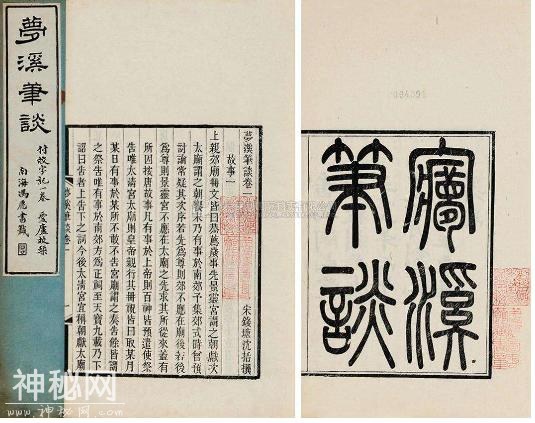 夢溪筆談
付校字記一卷 愛廬校槧
南海馮愿書籤
夢溪筆談卷一
宋錢塘沈括撰
故事一
上親郊廟冊文皆曰恭薦歲事先景靈宮謂之朝獻次
太廟謂之朝饗末乃有事於南郊予集郊式時曾預
討論常疑其次序若先為尊則郊不應在廟後若後
為尊則景靈宮不應在太廟之先求其所從來蓋有
所因按唐故事凡有事於上帝則百神皆預遣使祭
告唯太清宮太廟則皇帝親行其冊祝皆曰取某月
某日有事於某所不敢不告宮廟謂之奏告餘皆謂
之祭告唯有事於南郊方為正祠至天寶九載乃下
詔曰告者上告下之詞今後太清宮宜稱朝獻太廟
夢溪筆談卷一
夢溪
筆談
神秘网
www.神秘网.com